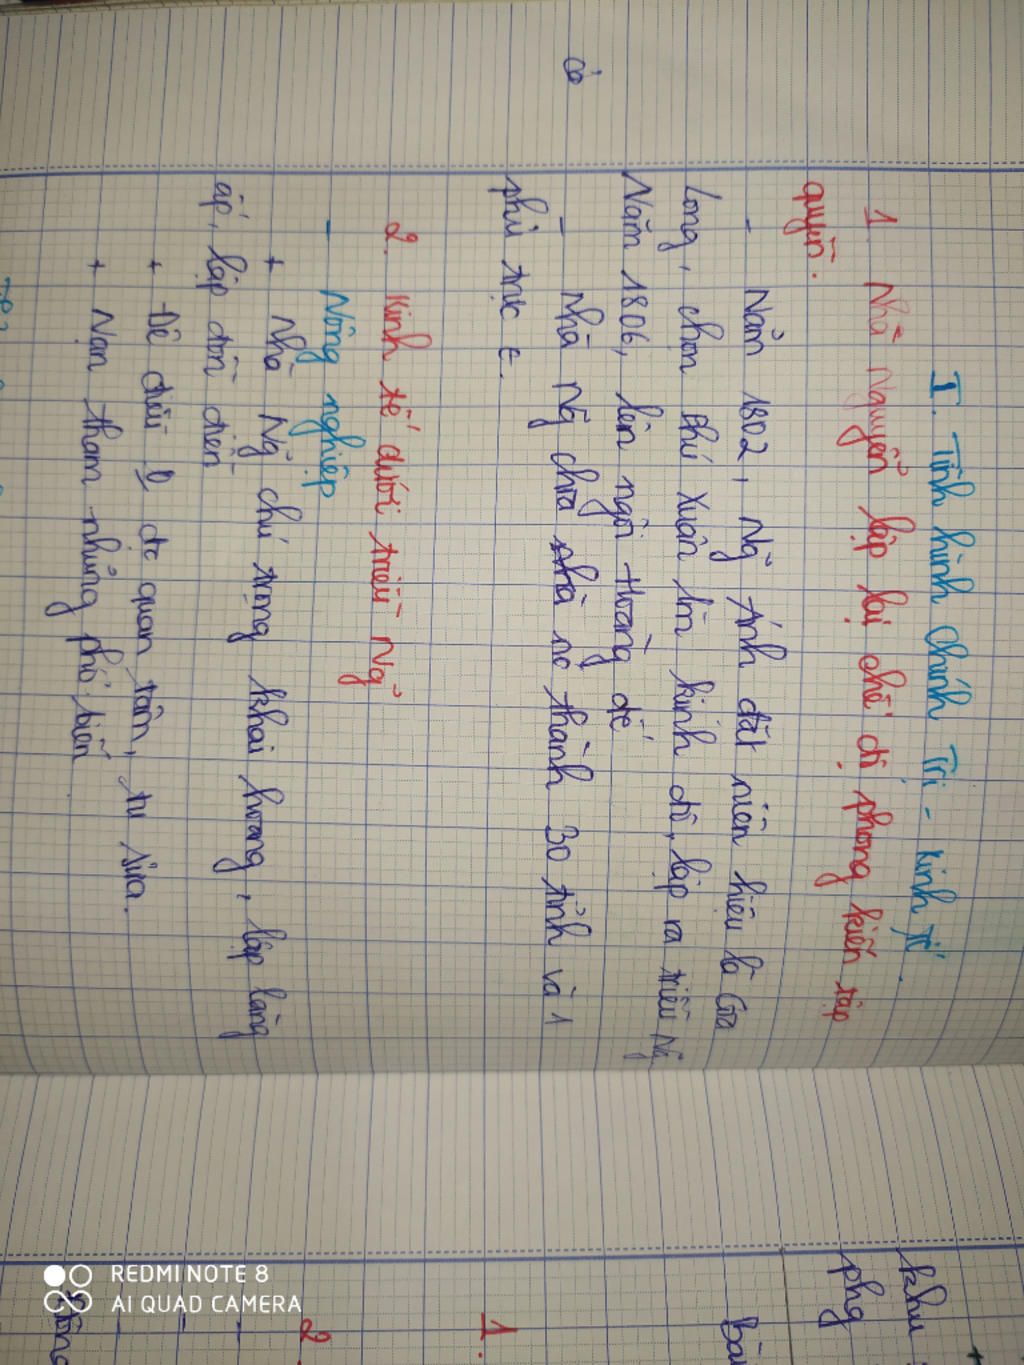 I. Tình hình chính trị - kinh tế.
1. Nhà Nguyễn lập lại chế độ phong kiến tập
quyền.
- Năm 1802, Ng~ Ánh đặt niên hiệu là Gia
Long, chọn Phú Xuân làm kinh đô, lập ra triều Ng~
Năm 1806, lên ngôi Hoàng đế
- Nhà Ng~ chia nhà nc thành 30 tỉnh và 1
phủ trực t.
2. Kinh tế dưới triều Ng~
- Nông nghiệp
+ Nhà Ng~ chú trọng khai hoang, lập làng
ấp, lập đồn điền
+ Đê điều đc quan tâm, tu sửa.
+ Nạn tham nhũng phổ biến
khu
phg
1.
2.
REDMI NOTE 8
AI QUAD CAMERA